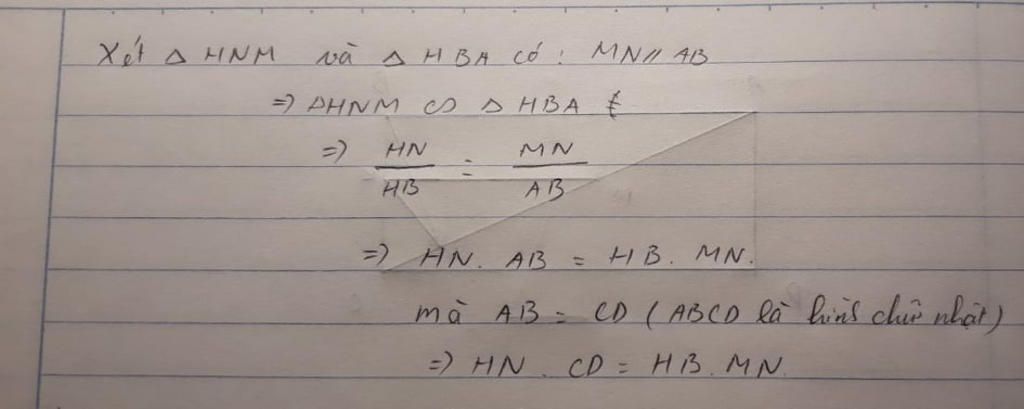 Xét △ HNM và △ HBA có: MN // AB
=> △HNM ∽ △ HBA
=> HN/HB = MN/AB
=> HN. AB = HB. MN.
mà AB = CD (ABCD là hình chữ nhật)
=> HN. CD = HB. MN.